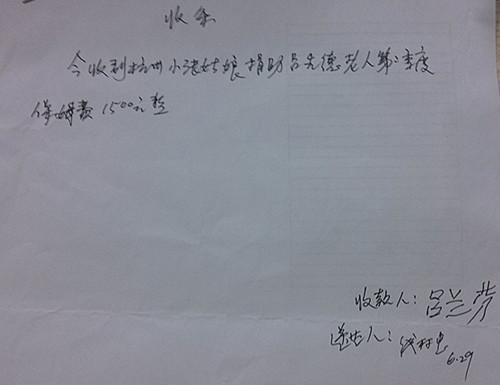 收条
今收到杭州小洪姑娘捐助吕先德老人第二季度
保姆费1500元整
收款人:吕兰芳
送达人:
6.29